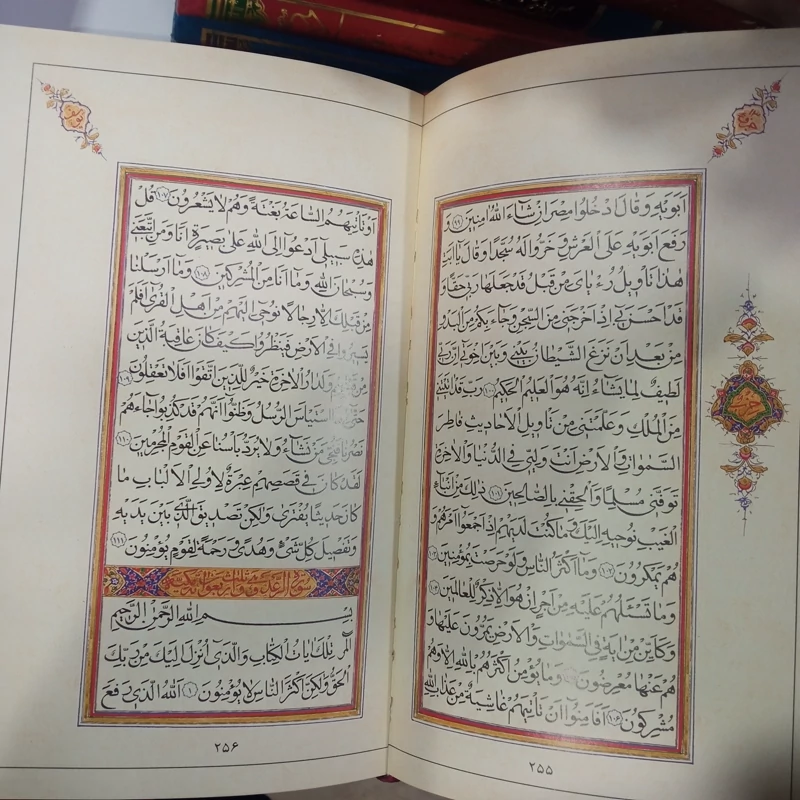 هود
حزب
اَبَوَيْهِ وَقَالَ ادْخُلُوا مِصْرَ اِنْ شَاءَ اللّٰهُ اٰمِنِينَ ﴿٩٩﴾ وَ
رَفَعَ اَبَوَيْهِ عَلَى الْعَرْشِ وَخَرُّوا لَهُ سُجَّدًا وَقَالَ يَا اَبَتِ
هٰذَا تَاْوِيلُ رُءْيَايَ مِنْ قَبْلُ قَدْ جَعَلَهَا رَبِّي حَقًّا وَ
قَدْ اَحْسَنَ بِي اِذْ اَخْرَجَنِي مِنَ السِّجْنِ وَجَاءَ بِكُمْ مِنَ الْبَدْوِ
مِنْ بَعْدِ اَنْ نَزَغَ الشَّيْطَانُ بَيْنِي وَبَيْنَ اِخْوَتِي اِنَّ رَبِّي
لَطِيفٌ لِمَا يَشَاءُ اِنَّهُ هُوَ الْعَلِيمُ الْحَكِيمُ ﴿١٠٠﴾ رَبِّ قَدْ اٰتَيْتَنِي
مِنَ الْمُلْكِ وَعَلَّمْتَنِي مِنْ تَاْوِيلِ الْاَحَادِيثِ فَاطِرَ
السَّمٰوَاتِ وَالْاَرْضِ اَنْتَ وَلِيِّي فِي الدُّنْيَا وَالْاٰخِرَةِ
تَوَفَّنِي مُسْلِمًا وَاَلْحِقْنِي بِالصَّالِحِينَ ﴿١٠١﴾ ذٰلِكَ مِنْ اَنْبَاءِ
الْغَيْبِ نُوحِيهِ اِلَيْكَ وَمَا كُنْتَ لَدَيْهِمْ اِذْ اَجْمَعُوا اَمْرَهُمْ وَ
هُمْ يَمْكُرُونَ ﴿١٠٢﴾ وَمَا اَكْثَرُ النَّاسِ وَلَوْ حَرَصْتَ بِمُؤْمِنِينَ ﴿١٠٣﴾
وَمَا تَسْئَلُهُمْ عَلَيْهِ مِنْ اَجْرٍ اِنْ هُوَ اِلَّا ذِكْرٌ لِلْعَالَمِينَ ﴿١٠٤﴾
وَكَاَيِّنْ مِنْ اٰيَةٍ فِي السَّمٰوَاتِ وَالْاَرْضِ يَمُرُّونَ عَلَيْهَا وَ
هُمْ عَنْهَا مُعْرِضُونَ ﴿١٠٥﴾ وَمَا يُؤْمِنُ اَكْثَرُهُمْ بِاللّٰهِ اِلَّا وَهُمْ
مُشْرِكُونَ ﴿١٠٦﴾ اَفَاَمِنُوا اَنْ تَاْتِيَهُمْ غَاشِيَةٌ مِنْ عَذَابِ اللّٰهِ
۲۵۵
يوسف
اَوْ تَاْتِيَهُمُ السَّاعَةُ بَغْتَةً وَهُمْ لَا يَشْعُرُونَ ﴿١٠٧﴾ قُلْ
هٰذِهِ سَبِيلِي اَدْعُوا اِلَى اللّٰهِ عَلٰى بَصِيرَةٍ اَنَا وَمَنِ اتَّبَعَنِي
وَسُبْحَانَ اللّٰهِ وَمَا اَنَا مِنَ الْمُشْرِكِينَ ﴿١٠٨﴾ وَمَا اَرْسَلْنَا
مِنْ قَبْلِكَ اِلَّا رِجَالًا نُوحِي اِلَيْهِمْ مِنْ اَهْلِ الْقُرٰى اَفَلَمْ
يَسِيرُوا فِي الْاَرْضِ فَيَنْظُرُوا كَيْفَ كَانَ عَاقِبَةُ الَّذِينَ
مِنْ وَلَدَارُ الْاٰخِرَةِ خَيْرٌ لِلَّذِينَ اتَّقَوْا اَفَلَا تَعْقِلُونَ ﴿١٠٩﴾
حَتّٰى اسْتَيْاَسَ الرُّسُلُ وَظَنُّوا اَنَّهُمْ قَدْ كُذِبُوا جَاءَهُمْ
نَصْرُنَا فَنُجِّيَ مَنْ نَشَاءُ وَلَا يُرَدُّ بَاْسُنَا عَنِ الْقَوْمِ الْمُجْرِمِينَ ﴿١١٠﴾
لَقَدْ كَانَ فِي قَصَصِهِمْ عِبْرَةٌ لِاُولِي الْاَلْبَابِ مَا
كَانَ حَدِيثًا يُفْتَرٰى وَلٰكِنْ تَصْدِيقَ الَّذِي بَيْنَ يَدَيْهِ
وَتَفْصِيلَ كُلِّ شَيْءٍ وَهُدًى وَرَحْمَةً لِقَوْمٍ يُؤْمِنُونَ ﴿١١١﴾
سورة الرعد
بِسْمِ اللّٰهِ الرَّحْمٰنِ الرَّحِيمِ
الٓمٓرٰ تِلْكَ اٰيَاتُ الْكِتَابِ وَالَّذِي اُنْزِلَ اِلَيْكَ مِنْ رَبِّكَ
الْحَقُّ وَلٰكِنَّ اَكْثَرَ النَّاسِ لَا يُؤْمِنُونَ ﴿١﴾ اَللّٰهُ الَّذِي رَفَعَ
۲۵۶